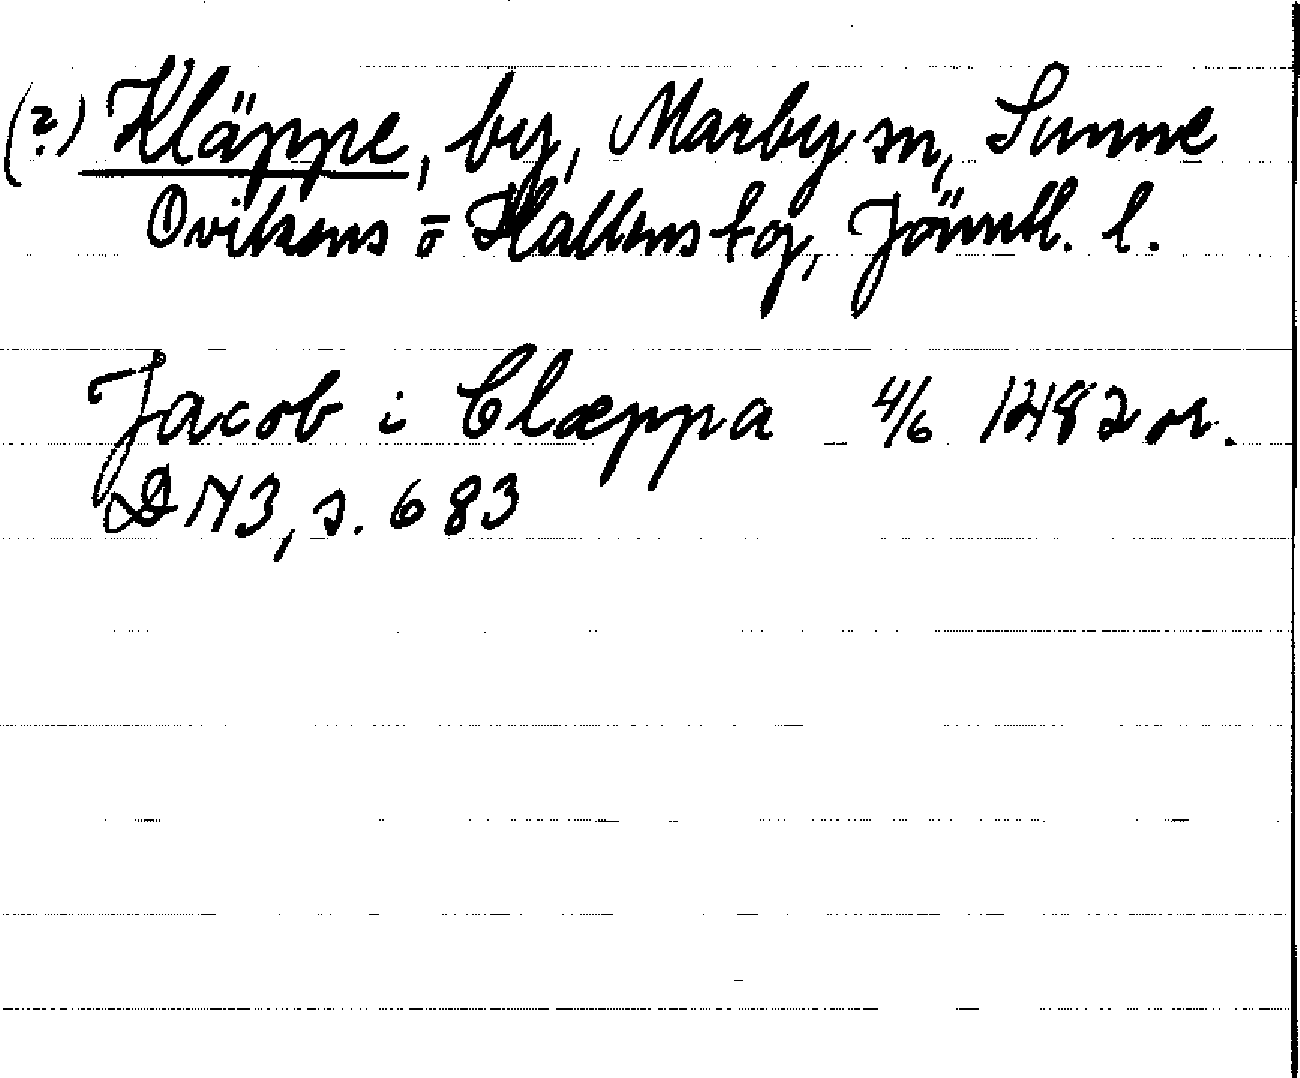 (?) Kläppe, by, Marby sn, Sunne
Ovikens o Hallens tg, Jämtl. l.
Jacob i Clæppa 4/6 1482 or.
DN 3, s. 683